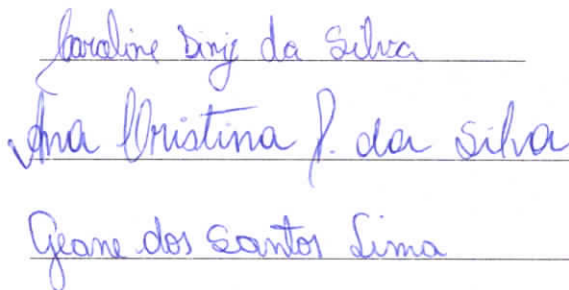 Caroline Diniz da Silva
Ana Cristina P. da Silva
Geane dos Santos Lima